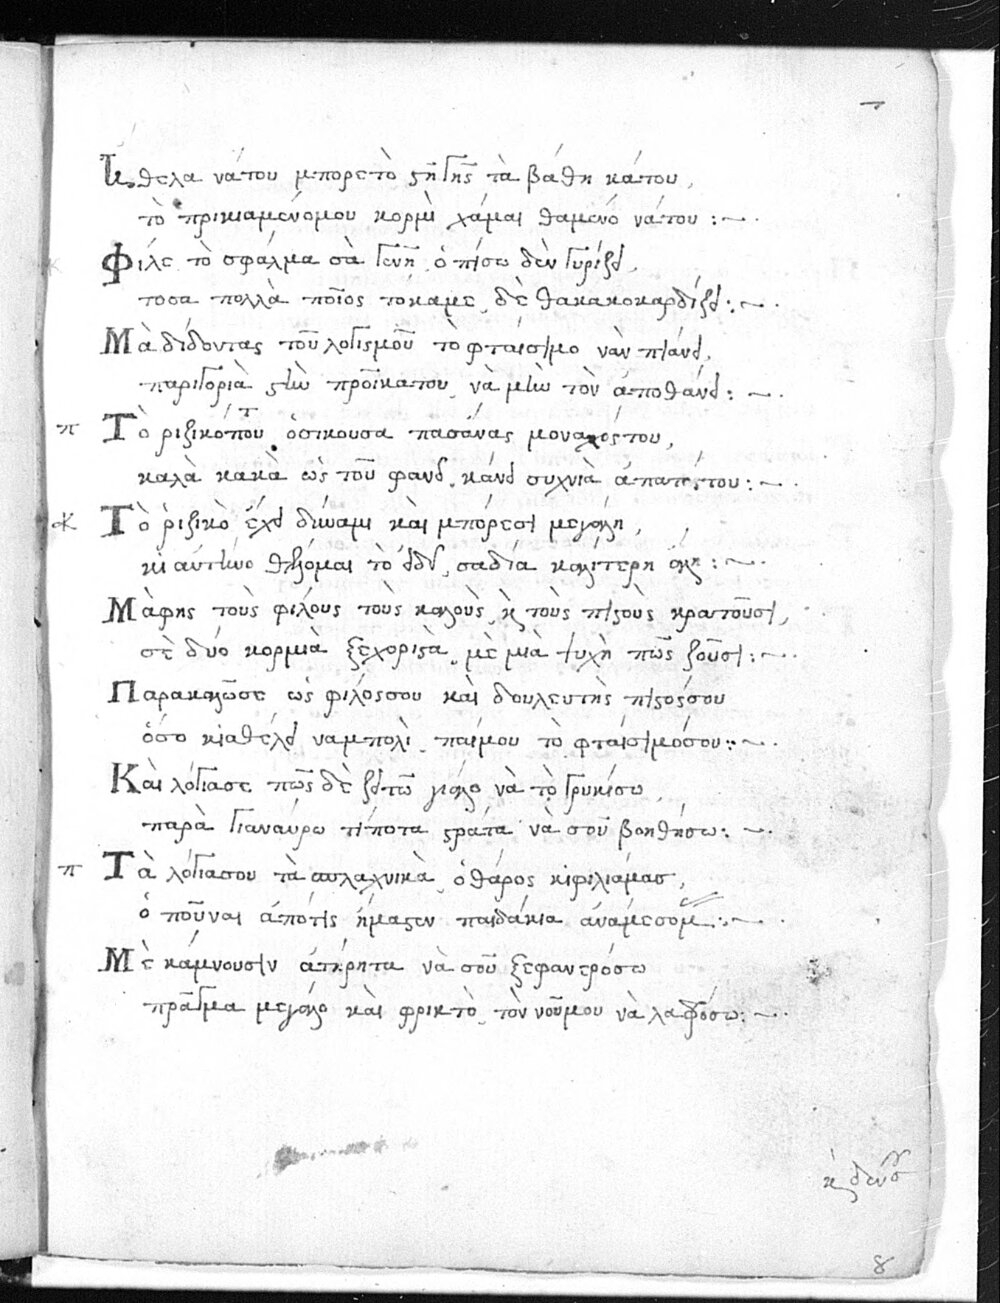 Κι, θελα νάτου μπορετὸ στῆ γῆς τὰ βάθη κάτου,
τὸ πρικιαμένομου κορμὶ χάμαι θαμενό νάτου :~
Φίλε τὸ σφάλμα σὰ γενῆ, ὀπίσω δὲν γυρίζει,
τοσα πολλὰ ποῖος τοκαμε, δὲ θακακοκαρδίζει :~
Μὰ δίδοντας τοῦ λογισμοῦ τὸ φταίσιμο νὰν πιάνει,
παριγοριὰ στὴν προῖκατου, νὰ μὴν τὸν ἀποθάνει :~
π Τὸ ριζικόπου οσικουσα πασάνας μοναχόςτου,
καλὰ κακὰ ὡς τοῦ φανεῖ, κάνει συχνιὰ ἀπατόςτου :~
Τὸ ῥιζικὸ ἔχει δύναμι καὶ μπόρεσι μεγάλη,
κι αὐτεῖνο θεξόμαι τὸ ἐδῶ, σαδία καλίτερη άλλη :~
Μάφης τοὺς φίλους τοὺς καλοὺς, κ τοὺς πιστοὺς κρατοῦσι,
σὲ δυό κορμιὰ ξεχοριστὰ, μὲ μιὰ ψυχὴ πῶς ζοῦσι :~
Παρακαλῶσε ὡς φίλοςσου καὶ δουλευτὴς πιστόςσου
ὅσο κιαθέλει ναμπολὶ παίμου τὸ φταίσιμόσου :~
Καὶ λόγιασε πῶς δὲ ζητῶ γιάλλο νὰ τὸ γρυκίσω
παρὰ γιαναύρω τίποτα στράτα νὰ σοῦ βοηθήσω :~
π Τὰ λόγιασου τὰ σπλαχνικὰ, ὁ θάρος κιφιλιάμας,
ὁ ποῦναι ἀπότις ἤμαστεν παιδάκια ἀνάμεσομ :~
Μὲ κάμνουσιν ἀπόκρητα νὰ σοῦ ξεφανερόσω
πρᾶγμα μεγάλο καὶ φρικτὸ, τὸν νοῦμου νὰ λαφρόσω :~
κ δεν σ
8